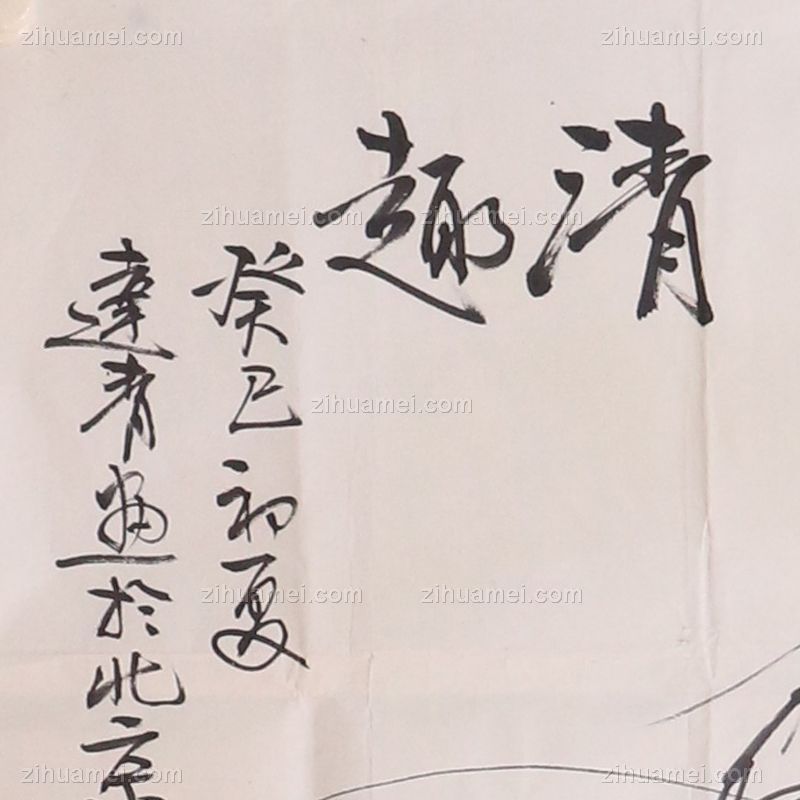 清趣
癸巳初夏
達青畫於北京
zihuamei.com
zihuamei.com
zihuamei.com
zihuamei.com
zihuamei.com
zihuamei.com
zihuamei.com
zihuamei.com
zihuamei.com
zihuamei.com
zihuamei.com